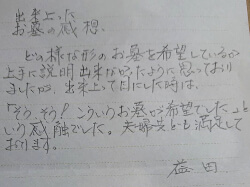 出来上った
お墓の感想、
どの様な形のお墓を希望しているか
上手に説明出来なかったように思っており
ましたが、出来上って目にした時は、
「そう、そう！こういうお墓が希望でした」と
いう感触でした。夫婦共とも満足して
おります。
益田